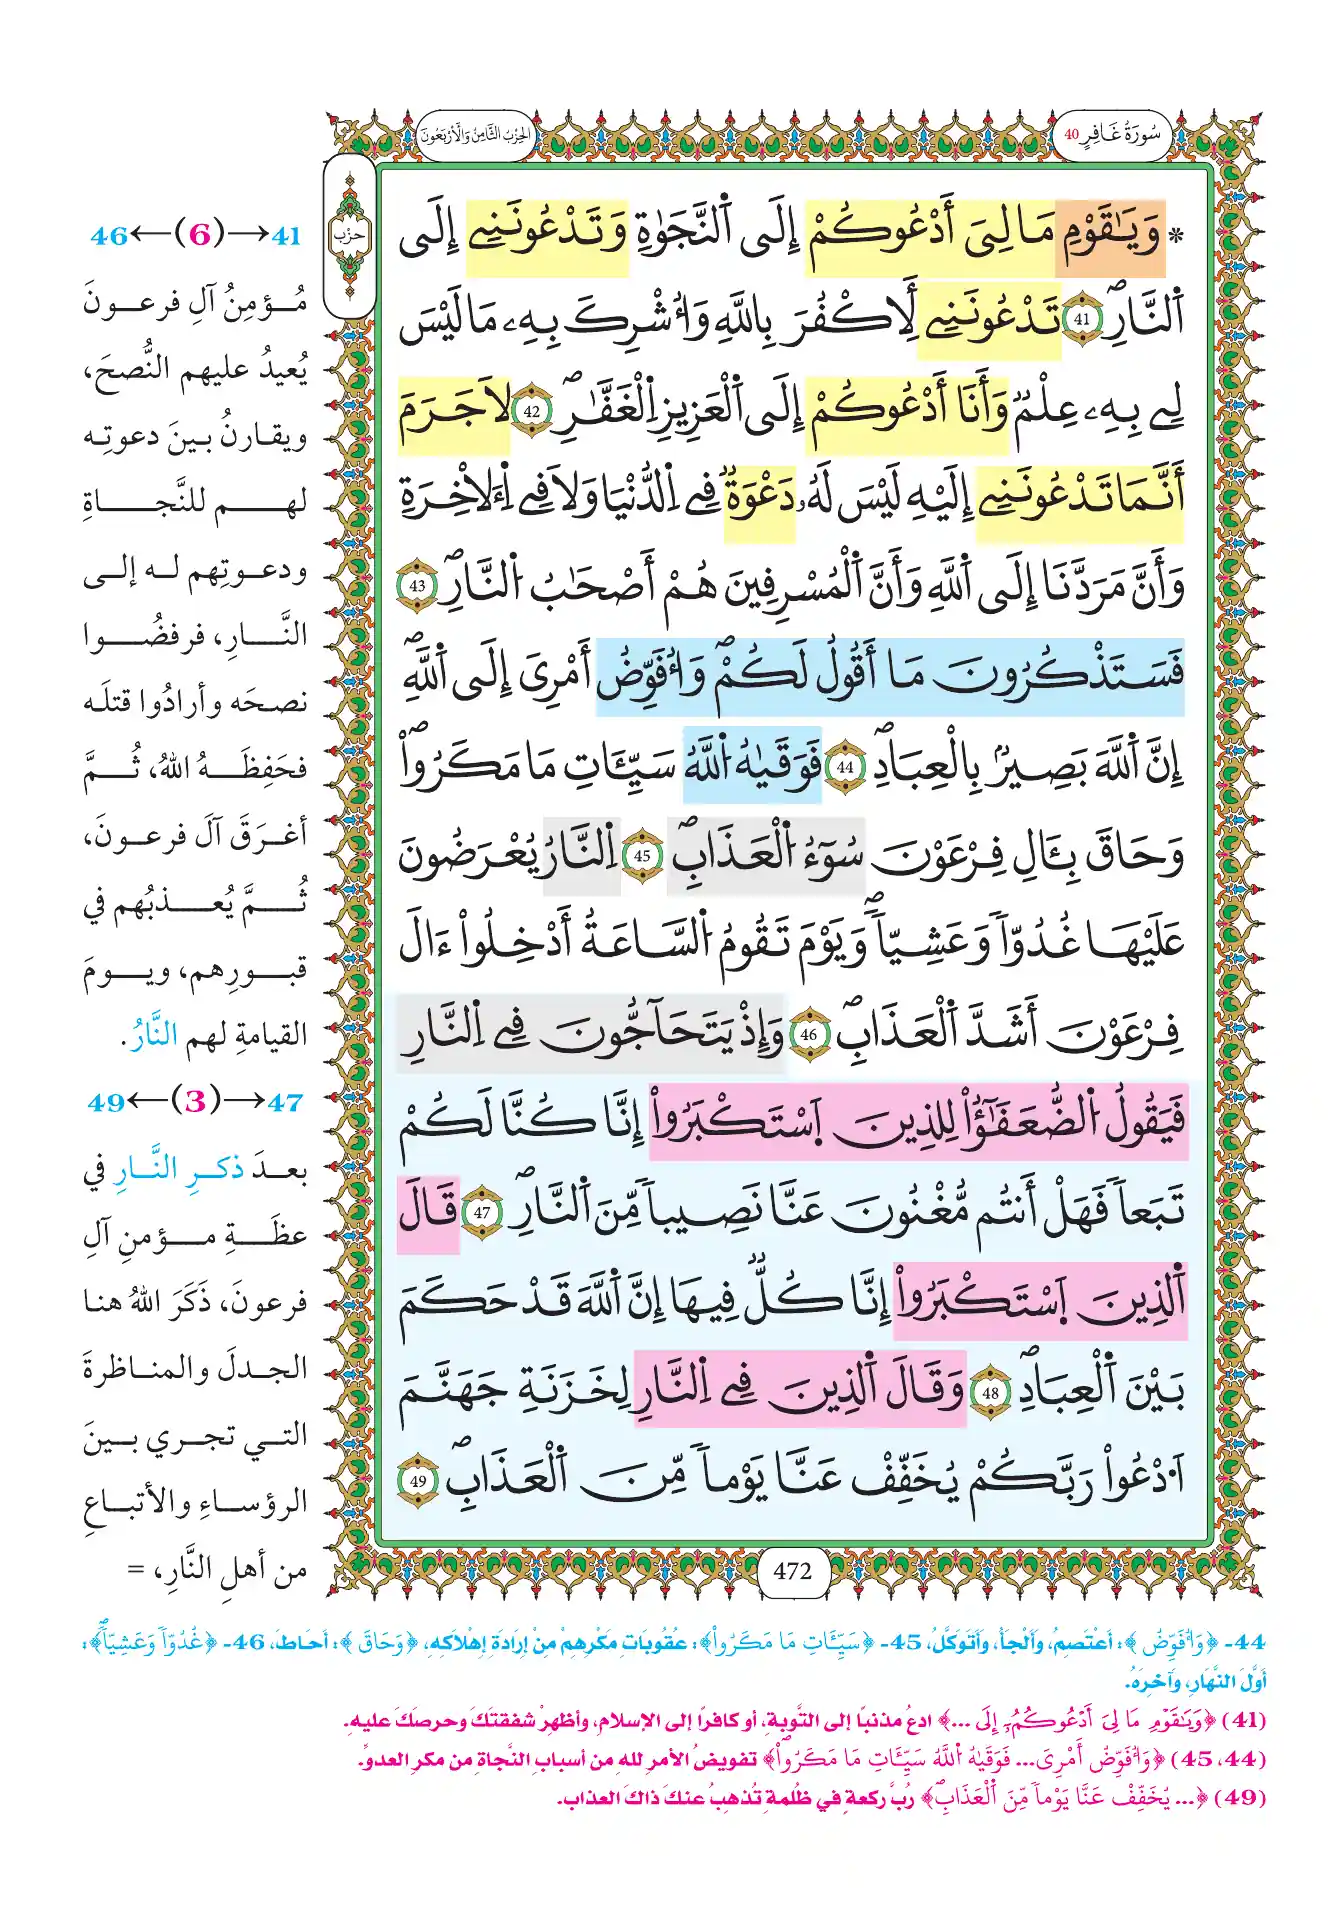 سُورَةُ غَافِرٍ 40
الحِزْبُ الثَّامِنُ وَالأَرْبَعُونَ
حزب
* وَيَٰقَوْمِ مَا لِيَ أَدْعُوكُمْ إِلَى اَ۬لنَّجَوٰةِ وَتَدْعُونَنِے إِلَى
اَ۬لنَّارِۖ 41 تَدْعُونَنِے لَأِكْفُرَ بِاللَّهِ وَأُشْرِكَ بِهِۦ مَا لَيْسَ
لِے بِهِۦ عِلْمٞ وَأَنَا أَدْعُوكُمْ إِلَى اَ۬لْعَزِيزِ اِ۬لْغَفَّٰرِۖ 42 لَا جَرَمَ
أَنَّمَا تَدْعُونَنِے إِلَيْهِ لَيْسَ لَهُۥ دَعْوَةٞ فِے اِ۬لدُّنْيَا وَلَا فِے اِ۬لَأخِرَةِ
وَأَنَّ مَرَدَّنَا إِلَى اَ۬للَّهِ وَأَنَّ اَ۬لْمُسْرِفِينَ هُمْ أَصْحَٰبُ اُ۬لنَّارِۖ 43
فَسَتَذْكُرُونَ مَا أَقُولُ لَكُمْۖ وَأُفَوِّضُ أَمْرِيَ إِلَى اَ۬للَّهِۖ
إِنَّ اَ۬للَّهَ بَصِيرُۢ بِالْعِبَادِۖ 44 فَوَقَيٰهُ اُ۬للَّهُ سَيِّـَٔاتِ مَا مَكَرُواْۖ
وَحَاقَ بِـَٔالِ فِرْعَوْنَ سُوٓءُ اُ۬لْعَذَابِۖ 45 اِ۬لنَّارُ يُعْرَضُونَ
عَلَيْهَا غُدُوّاٗ وَعَشِيّاٗۖ وَيَوْمَ تَقُومُ اُ۬لسَّاعَةُ أَدْخِلُواْ ءَالَ
فِرْعَوْنَ أَشَدَّ اَ۬لْعَذَابِۖ 46 وَإِذْ يَتَحَآجُّونَ فِے اِ۬لنَّارِ
فَيَقُولُ اُ۬لضُّعَفَٰٓؤُاْ لِلذِينَ اَ۪سْتَكْبَرُواْ إِنَّا كُنَّا لَكُمْ
تَبَعاٗ فَهَلْ أَنتُم مُّغْنُونَ عَنَّا نَصِيباٗ مِّنَ اَ۬لنَّارِۖ 47 قَالَ
اَ۬لذِينَ اَ۪سْتَكْبَرُواْ إِنَّا كُلّٞ فِيهَا إِنَّ اَ۬للَّهَ قَدْ حَكَمَ
بَيْنَ اَ۬لْعِبَادِۖ 48 وَقَالَ اَ۬لذِينَ فِے اِ۬لنَّارِ لِخَزَنَةِ جَهَنَّمَ
اَ۟دْعُواْ رَبَّكُمْ يُخَفِّفْ عَنَّا يَوْماٗ مِّنَ اَ۬لْعَذَابِۖ 49
472
41→(6)←46
مُؤمِنُ آلِ فرعونَ
يُعيدُ عليهم النُّصحَ،
ويقارنُ بينَ دعوتِه
لهم للنَّجاةِ
ودعوتِهم له إلى
النَّارِ، فرفضُوا
نصحَه وأرادُوا قتلَه
فحَفِظَهُ اللهُ، ثُمَّ
أغرَقَ آلَ فرعونَ،
ثُمَّ يُعذبُهم في
قبورِهم، ويومَ
القيامةِ لهم النَّارُ.
47→(3)←49
بعدَ ذكرِ النَّارِ في
عظَةِ مؤمنِ آلِ
فرعونَ، ذَكَرَ اللهُ هنا
الجدلَ والمناظرةَ
التي تجري بينَ
الرؤساءِ والأتباعِ
من أهلِ النَّارِ، =
44- ﴿وَأُفَوِّضُ﴾: أعْتَصِمُ، وَألْجَأُ، وَأتَوَكَّلُ، 45- ﴿سَيِّـَٔاتِ مَا مَكَرُواْ﴾: عُقُوبَاتِ مَكْرِهِمْ مِنْ إِرَادَةِ إِهْلَاكِهِ، ﴿وَحَاقَ﴾: أحَاطَ، 46- ﴿غُدُوّاٗ وَعَشِيّاٗۖ﴾:
أوَّلَ النَّهَارِ، وَآخِرَهُ.
(41) ﴿وَيَٰقَوْمِ مَا لِيَ أَدْعُوكُمُۥ إِلَى ...﴾ ادعُ مذنبًا إلى التَّوبةِ، أو كافرًا إلى الإسلامِ، وأظهِرْ شفقتَكَ وحرصكَ عليهِ.
(44، 45) ﴿وَأُفَوِّضُ أَمْرِيَ... فَوَقَيٰهُ اُ۬للَّهُ سَيِّـَٔاتِ مَا مَكَرُواْۖ﴾ تفويضُ الأمرِ للهِ من أسبابِ النَّجاةِ من مكرِ العدوِّ.
(49) ﴿... يُخَفِّفْ عَنَّا يَوْماٗ مِّنَ اَ۬لْعَذَابِۖ﴾ رُبَّ ركعةٍ في ظلُمةٍ تُذهبُ عنكَ ذاكَ العذاب.